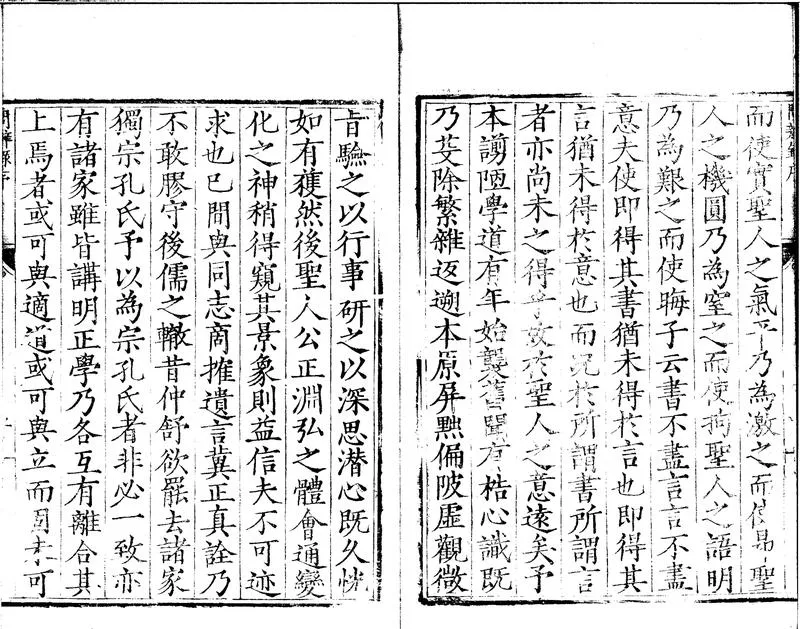 而使實聖人之氣平乃為激之而使易聖
人之機圓乃為窒之而使拘聖人之語明
乃為艱之而使晦子云書不盡言言不盡
意夫使即得其書猶未得於言也即得其
言猶未得於意也而況於所謂書所謂言
者亦尚未之得乎故於聖人之意遠矣予
本謭陋學道有年始襲舊聞有梏心識既
乃芟除繁雜返遡本原屏黜偏陂虛觀微
旨驗之以行事研之以深思潛心既久恍
如有獲然後聖人公正淵弘之體會通變
化之神稍得窺其景象則益信夫不可迹
求也已間與同志商搉遺言冀正真詮乃
不敢膠守後儒之轍昔仲舒欲罷去諸家
獨宗孔氏予以為宗孔氏者非必一致亦
有諸家雖皆講明正學乃各互有離合其
上焉者或可與適道或可與立而固未可
問辨録序